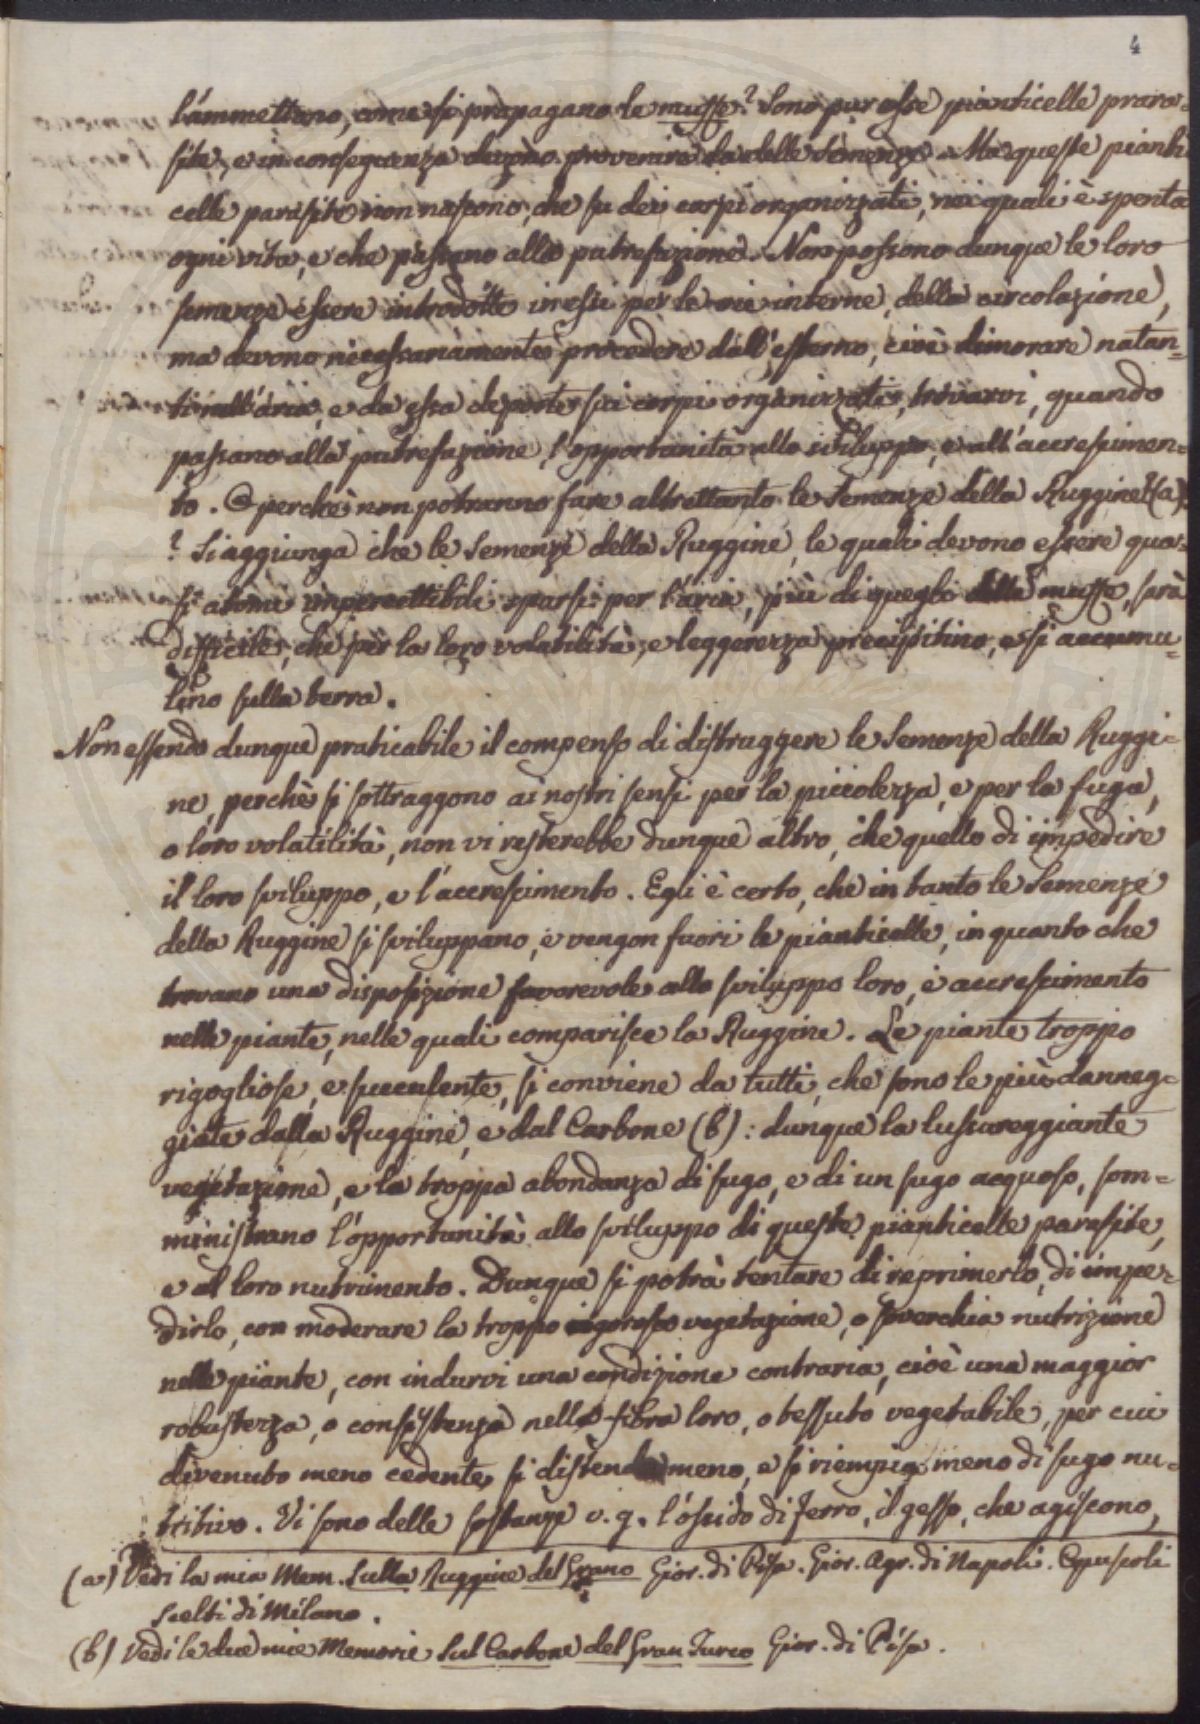 4
l'ammettono, come si propagano le muffe? Sono pur esse pianticelle para-
site, e in conseguenza devono provenire da delle Semenze. Ma queste pianti
celle parasite non nascono, che su dei corpi organizzati, nei quali è spenta
ogni vita, e che passano alla putrefazione. Non possono dunque le loro
semenze essere introdotte in essi per le vie interne, della circolazione,
ma devono necessariamente procedere dall'esterno, cioè dimorare natan-
ti nell'aria, e da essa deposte sui corpi organizzati, trovarvi, quando
passano alla putrefazione, l'opportunità allo sviluppo, e all'accrescimen-
to. E perchè non potranno fare altrettanto le Semenze della Ruggine? (a)
? Si aggiunga che le Semenze della Ruggine, le quali devono essere qua-
si atomi impercettibili sparsi per l'aria, più di quegli delle muffe, sarà
difficile, che per la loro volatilità, e leggerezza precipitino, e si accumu-
lino sulla terra.
Non essendo dunque praticabile il compenso di distruggere le Semenze della Ruggi-
ne, perchè si sottraggono ai nostri sensi per la piccolezza, e per la fuga,
o loro volatilità, non vi resterebbe dunque altro, che quello di impedire
il loro sviluppo, e l'accrescimento. Egli è certo, che in tanto le Semenze
della Ruggine si sviluppano, e vengon fuori le pianticelle, in quanto che
trovano una disposizione favorevole allo sviluppo loro, e accrescimento
nelle piante, nelle quali comparisce la Ruggine. Le piante troppo
rigogliose, e succulente, si conviene da tutti, che sono le più danneg-
giate dalla Ruggine, e dal Carbone (b): dunque la lussureggiante
vegetazione, e la troppa abondanza di sugo, e di un sugo acquoso, som-
ministrano l'opportunità allo sviluppo di queste pianticelle parasite,
e al loro nutrimento. Dunque si potrà tentare di reprimerlo, di impe-
dirlo, con moderare la troppo vigorosa vegetazione, o soverchia nutrizione
nelle piante, con indurvi una condizione contraria, cioè una maggior
robustezza, o consistenza nella fibra loro, o tessuto vegetabile, per cui
divenuto meno cedente, si distenda meno, e si riempia meno di sugo nu-
tritivo. Vi sono delle sostanze v. g. l'ossido di ferro, il gesso, che agiscono,
(a) Vedi la mia Mem. Sulla Ruggine del Grano Gior. di Pisa. Gior. Agr. di Napoli. Opuscoli
Scelti di Milano.
(b) Vedi le due mie Memorie sul Carbone del Gran Turco Gior. di Pisa.